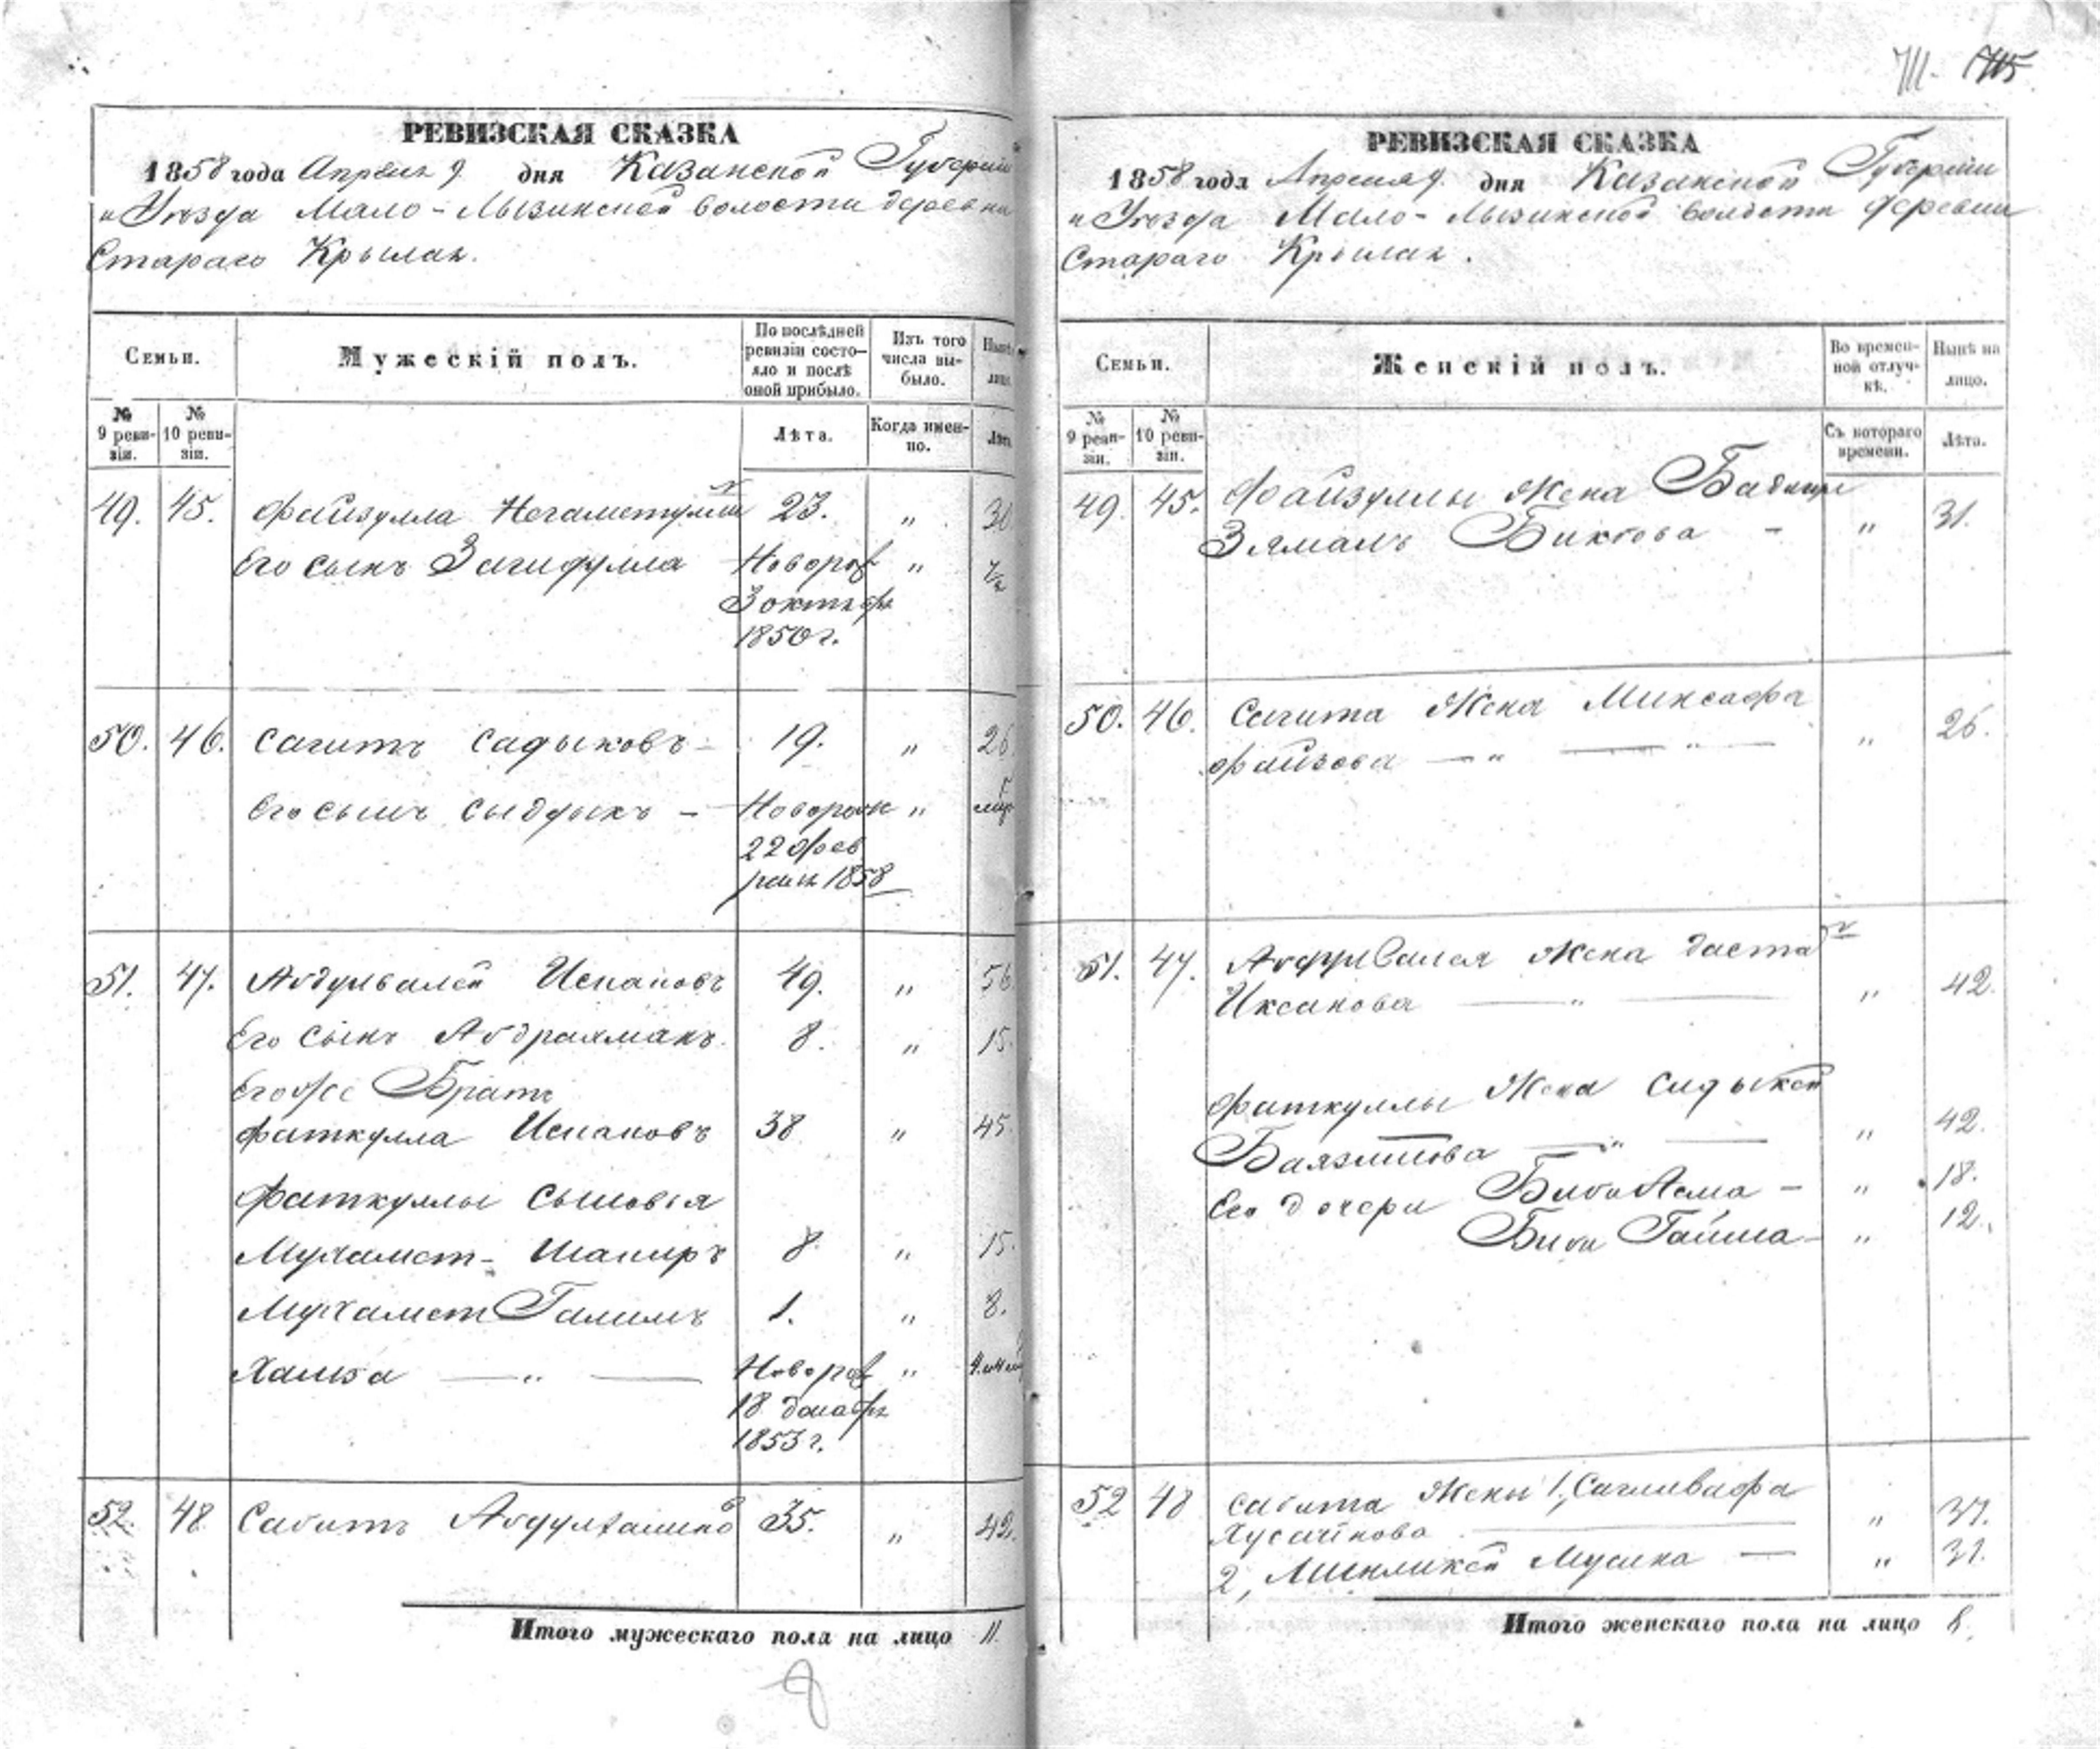 РЕВИЗСКАЯ СКАЗКА
1858 года Апреля 9. дня Казанской Губернии
и Уезда Мало-Лызинской волости деревни
Стараго Крылак.
Семьи.
Мужескій полъ.
По послѣдней ревизіи состояло и послѣ оной прибыло.
Изъ того числа выбыло.
№ 9 ревизіи.
№ 10 ревизіи.
Лѣта.
Когда именно.
Лѣта
49. 45. Файзулла Негаметуллин 23. " 30
Его сынъ Загидулла Новорож " 7½
3 октября
1850 г.
50. 46. Сагитъ Садыковъ - 19. " 26
Его сынъ Сыддыкъ - Новорож "
22 фев
раля 1858
51. 47. Абдулвалей Искаковъ 49. " 56
Его сынъ Абдрахманъ 8. " 15.
Его же Братъ
Фаткулла Искаковъ 38 " 45.
Фаткуллы сыновья
Мухамет-Шакиръ 8. " 15.
Мухамет Галимъ 1. " 8.
Хамза — " — Новорож "
18 декабря
1853 г.
52. 48 Сабитъ 35. " 42.
Итого мужескаго пола на лицо 11.
РЕВИЗСКАЯ СКАЗКА
1858 года Апреля 9. дня Казанской Губернии
и Уезда Мало-Лызинской волости деревни
Стараго Крылак.
Семьи.
Женскій полъ.
Во временной отлучкѣ.
Нынѣ на лицо.
№ 9 ревизіи.
№ 10 ревизіи.
Съ котораго времени.
Лѣта.
49. 45. Файзуллы жена Бадыги
Зямалъ Бикгова - " 31.
50. 46. Сагита жена Минсафа
Файзова — " — " — " 26.
51. 47. Абдулвалея жена
Иксанова — " — " 42.
Фаткуллы жена Сидыкей
Баязитова — " — " 42.
Его дочери Биби Асма - " 18.
Биби Гайша - " 12.
52 48 Сабита жены 1, Сагливафа
Хусаинова — " 37.
2, Минликей Мусина — " 31.
Итого женскаго пола на лицо 8.